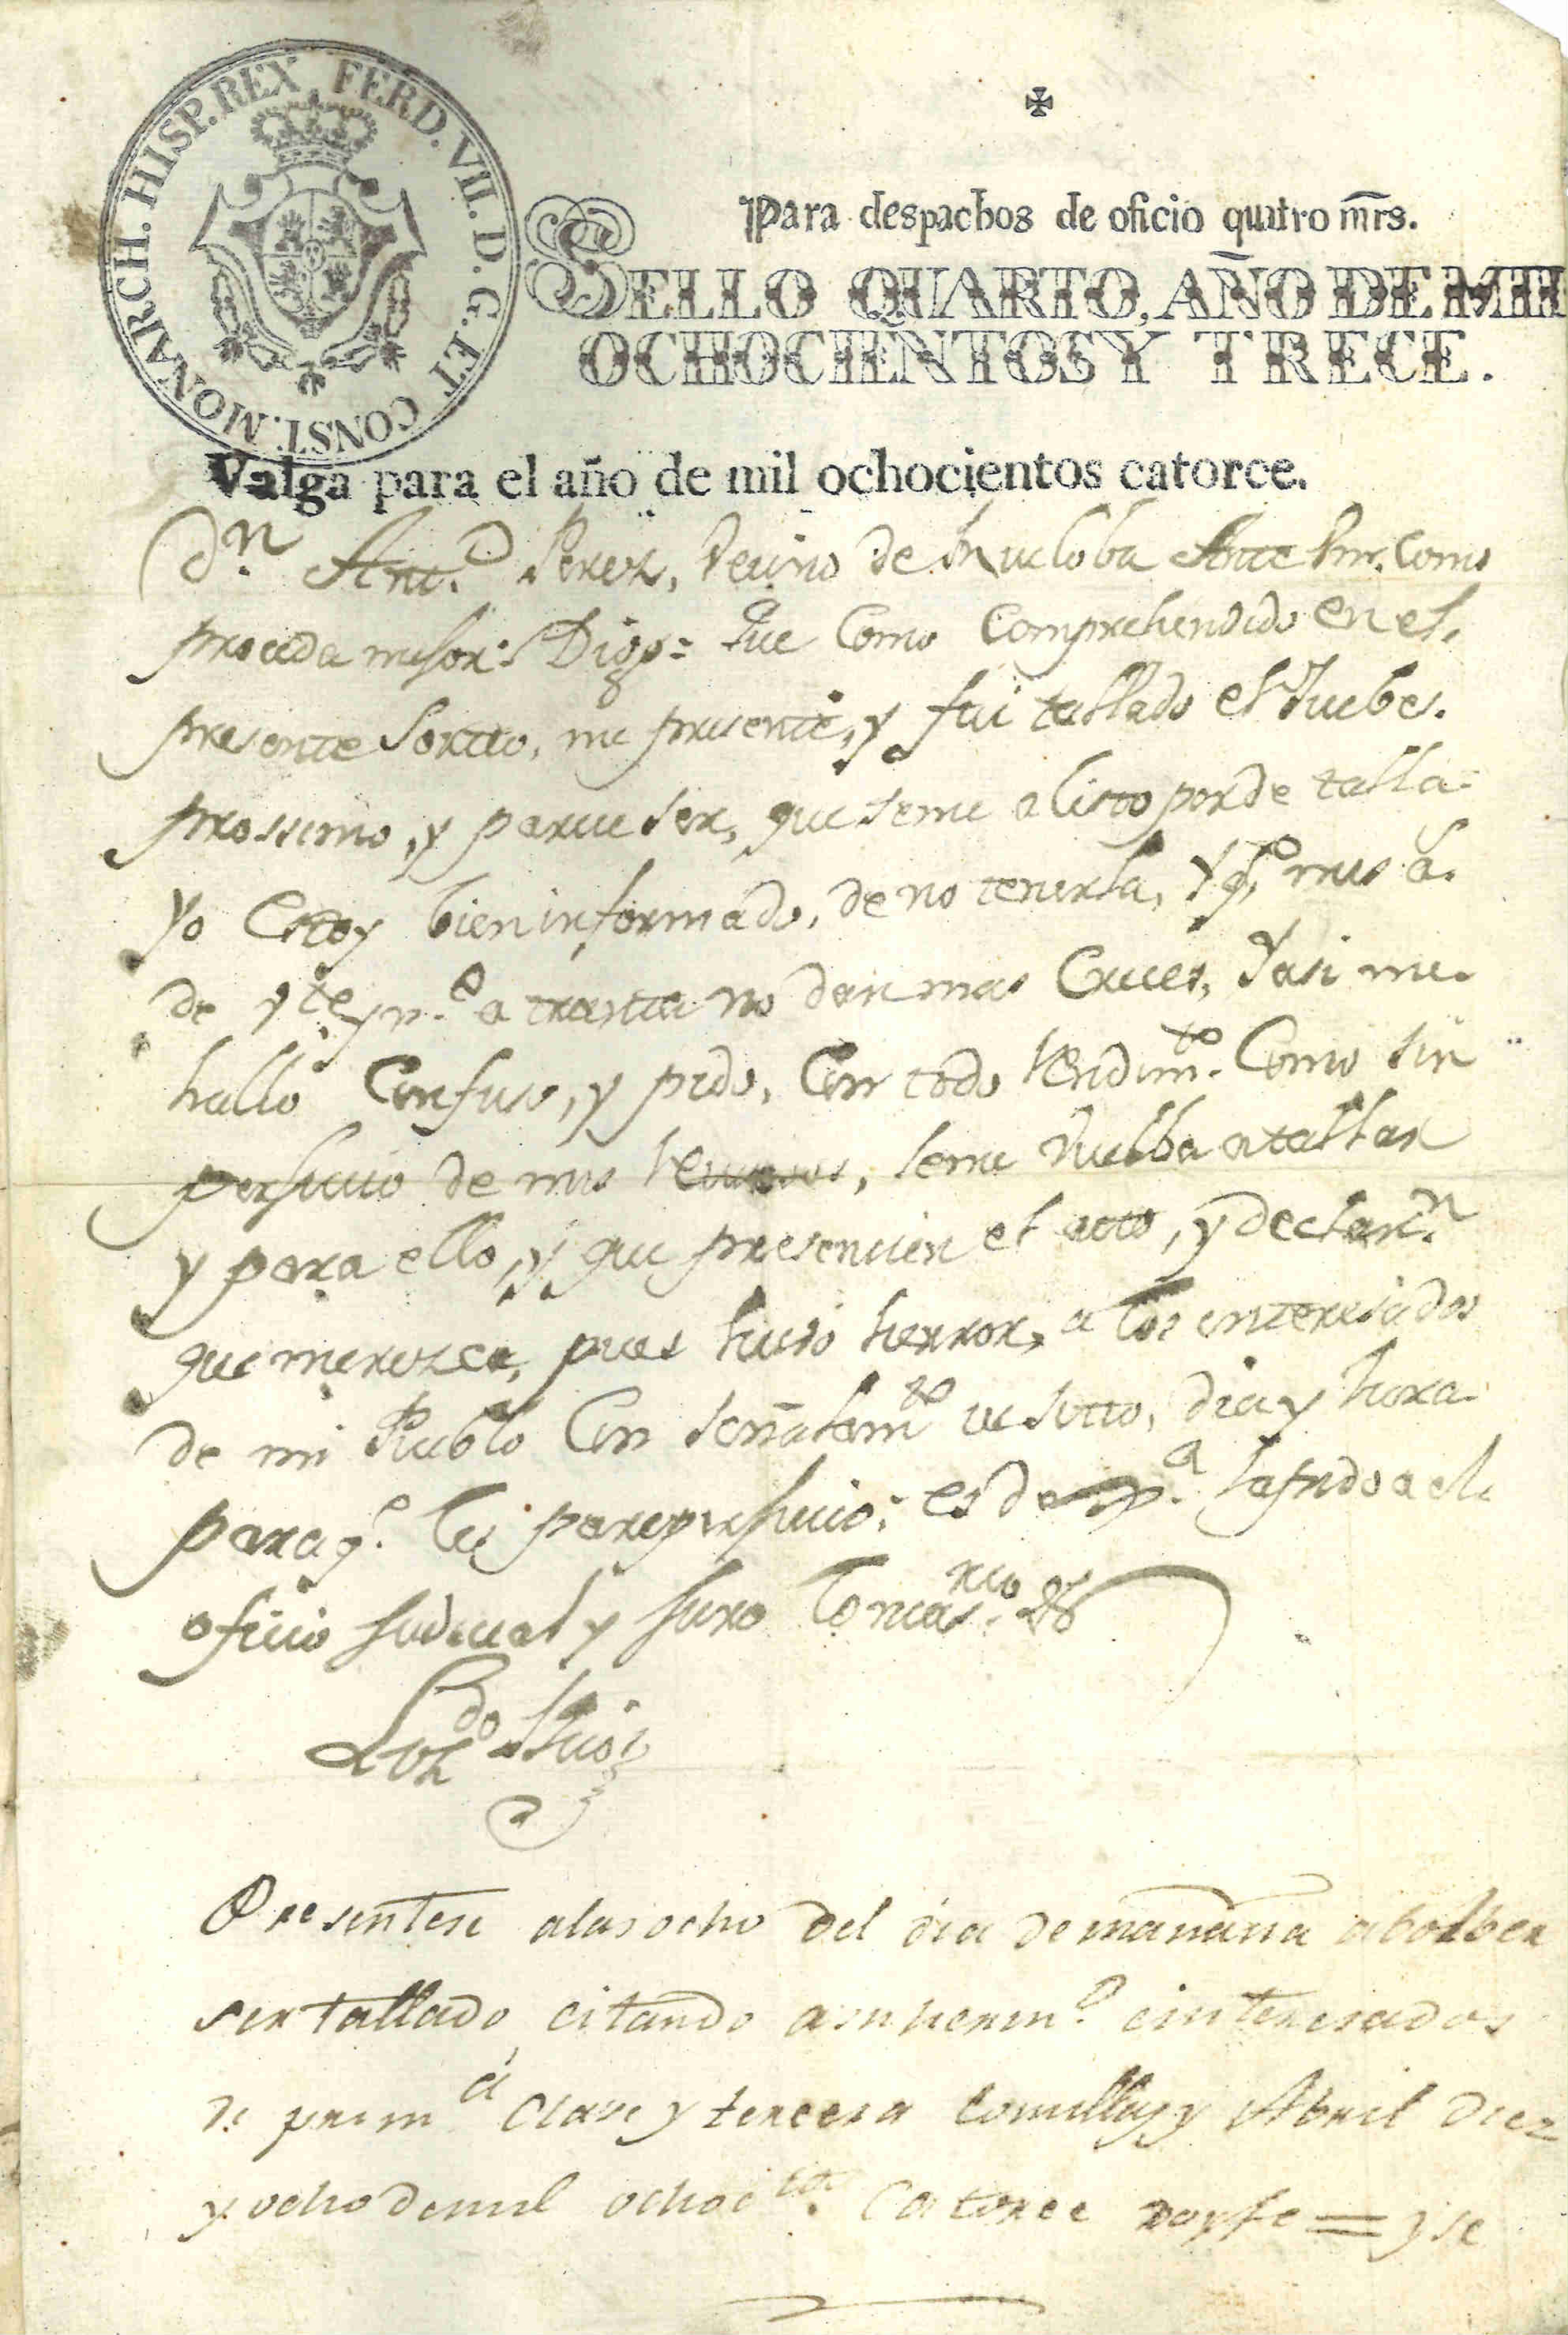 HISP. REX. FERD. VII. D. G. ET CONST. MONARCH.
Para despachos de oficio quatro mrs.
SELLO QUARTO, AÑO DE MIL
OCHOCIENTOS Y TRECE.
Valga para el año de mil ochocientos catorce.
Dn. Anto. Perez, Vecino de Ante Vm. Como
proceda mejor: Digo = Que Como Comprehendido en el
presente Sorteo, me presente, y fui tallado el Juebes
prossimo, y parece ser, que se me alisto por de talla
Yo Estoy bien informado, de no tenerla, Y qe. mas á
de a no dan mas Cruces, Y asi me
hallo Confuso, y pido, Con todo Rendimto. Como sin
perjuicio de mis Recursos, se me Vuelba a tallar
y para ello, y que presencien el acto, y declarn.
que merezca, pues huvo herror, a los interesados
de mi Pueblo Con señalamto de sitio, dia y hora
para qe. les pare perjuicio: es de la pido a el
oficio judicial y juro lo necesrio. &
Ldo
Presentese a las ocho del dia de mañana a bolber
ser tallado, citando a su hermo. e interesados
de prima Clase y tercera Comillas y Abril diez
y ocho de mil ochocitos. Catorce doy fe = y se